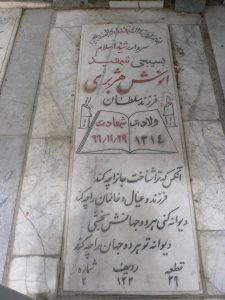 سردار رشید اسلام
بسیجی شهید
انوش هژبری
فرزند سلطان
ولادت شهادت
۱۳۱۴ ۶۶/۱۱/۲۹
آنکس که ترا شناخت جانرا چه کند
فرزند و عیال و خانمان را چه کند
دیوانه کنی هر دو جهانش بخشی
دیوانه تو هر دو جهان را چه کند
قطعه ردیف شماره
۲۹ ۱۳۳